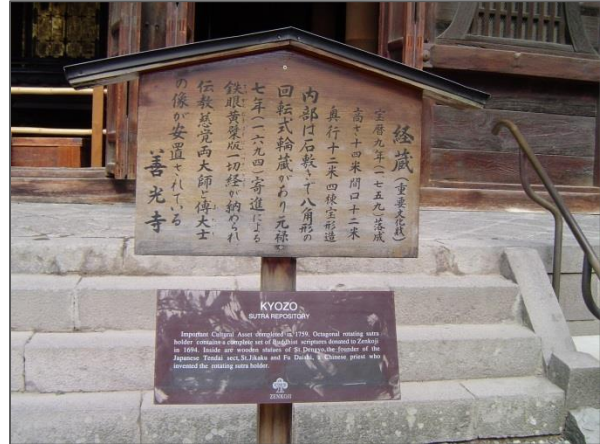 経蔵（重要文化財）
宝暦九年（一七五九）落成
高さ十四米 間口十二米
奥行十二米 四棟宝形造
内部は石敷きで八角形の
回転式輪蔵があり元禄
七年（一六九四）寄進による
鉄眼黄檗版一切経が納められ
伝教慈覚両大師と傅大士
の像が安置されている
善光寺
KYOZO
SUTRA REPOSITORY
Important Cultural Asset completed in 1759. Octagonal rotating sutra
holder contains a complete set of Buddhist scriptures donated to Zenkoji
in 1694. Inside are wooden statues of St.Dengyo, the founder of the
Japanese Tendai sect, St.Jikaku and Fu Daishi, a Chinese priest who
invented the rotating sutra holder.
ZENKOJI